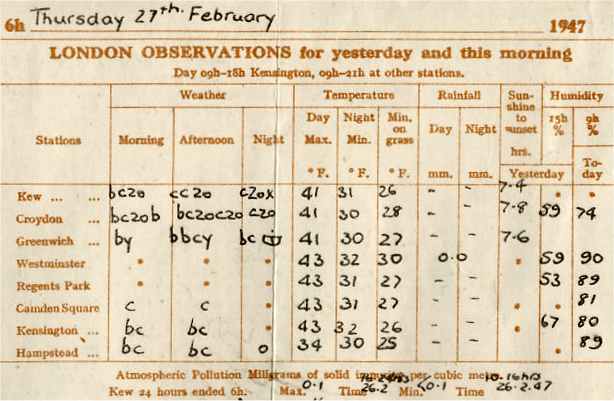 6h Thursday 27th. February 1947
LONDON OBSERVATIONS for yesterday and this morning
Day 09h–18h Kensington, 09h–21h at other stations.
Stations Weather Temperature Rainfall Sunshine to sunset hrs. Humidity
Morning Afternoon Night Day Max. °F. Night Min. °F. Min. on grass °F. Day mm. Night mm. 15h % 9h %
Yesterday To-day
Kew ... ... bczo cczo czox 41 31 26 - - 7.4 • •
Croydon ... bczob bczoczo czo 41 30 28 - - 7.8 59 74
Greenwich ... by bbcy bc 41 30 27 - - 7.6
Westminster • • • 43 32 30 0.0 • 59 90
Regents Park • • • 43 31 27 - - 53 89
Camden Square c c • 43 31 27 - - • • 81
Kensington ... bc bc • 43 32 26 - - • 67 80
Hampstead ... bc bc o 34 30 25 - - • 89
Atmospheric Pollution Milligrams of solid impurity per cubic metre 10-16hrs
Kew 24 hours ended 6h. Max. 0.1 Time 26.2 Min. <0.1 Time 26.2.47